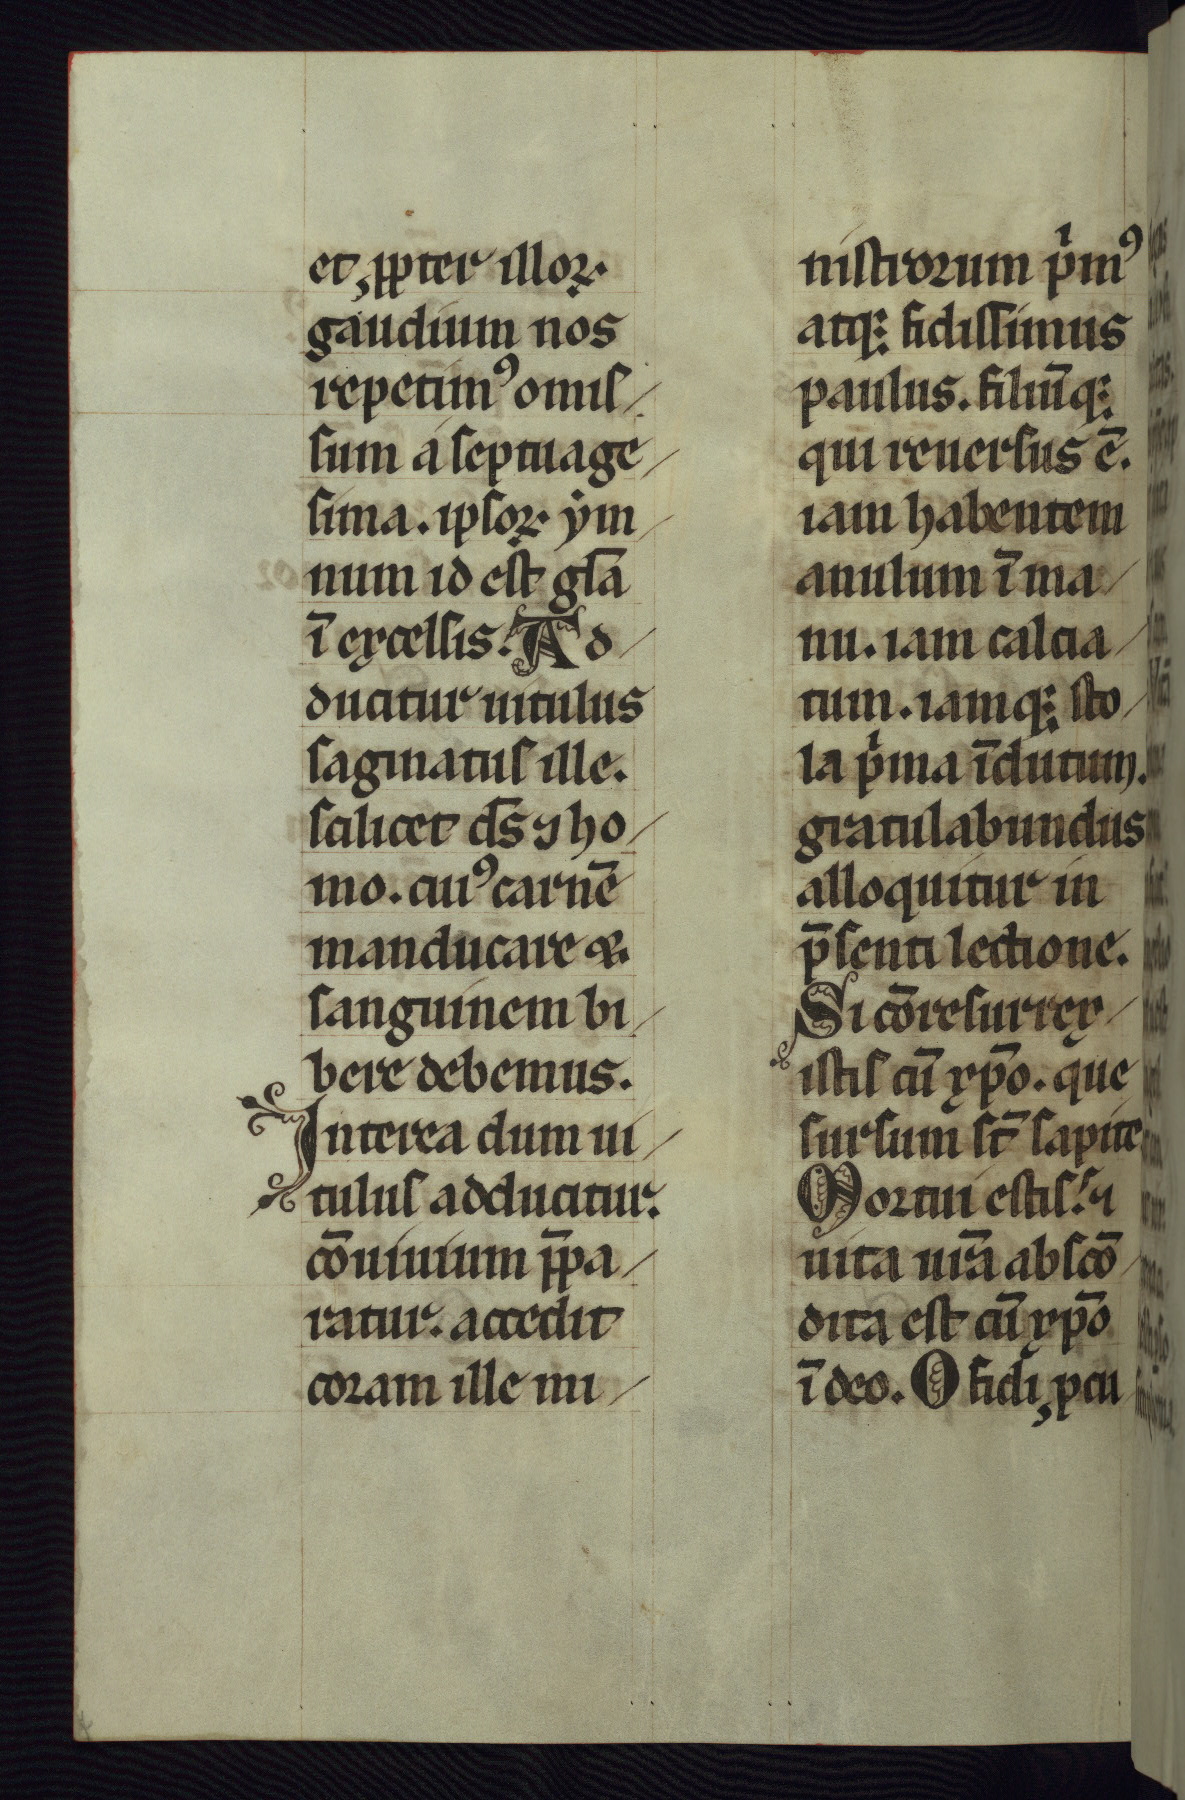 et ꝓpter illoꝝ
gaudium nos
repetimꝰ omiſ
ſum a ſeptuage
ſima. ipſoꝝ ẏm
num id eſt gl̄a
ī excelſis. Ad
ducitur uitulus
ſaginatuſ ille.
ſcilicet ds̄ ⁊ ho
mo. cuiꝰ carnē
manducare &
ſanguinem bi
bere debemus.
Interea dum ui
tuluſ adducitur.
cōuiuium p̄pa
ratur. accedit
coram ille mi
niſtrorum pͥmꝰ
atq; fidiſſimus
paulus. filiūq;
qui reuerſus ē.
iam habentem
anulum ī ma
nu. iam calcia
tum. iamq; ſto
la pͥma īdutum.
gratulabundus
alloquitur in
p̄ſenti lectione.
Si cōreſurrex
iſtiſ cū xp̄o. que
ſurſum ſt̄ ſapite
Mortui eſtiſ. ⁊
uita ur̄a abſcō
dita eſt cū xp̄o
ī deo. O fidi ꝓcu